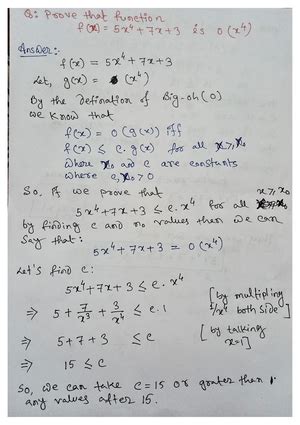 Q: Prove that function
f(x) = 5x⁴ + 7x + 3 is O(x⁴)
Answer:-
f(x) = 5x⁴ + 7x + 3
Let, g(x) = (x⁴)
By the defination of Big-oh (O)
we know that
f(x) = O(g(x)) iff
f(x) ≤ c. g(x) for all x ≥ x₀
where x₀ and c are constants
where c, x₀ > 0
So, if we prove that x ≥ x₀
5x⁴ + 7x + 3 ≤ c. x⁴ for all
by finding c and n₀ values then we can
say that:
5x⁴ + 7x + 3 = O(x⁴)
Let's find c:
5x⁴ + 7x + 3 ≤ c. x⁴
⇒ 5 + 7/x³ + 3/x⁴ ≤ c. 1 [by multipling 1/x⁴ both side]
⇒ 5 + 7 + 3 ≤ c [by talking x=1]
⇒ 15 ≤ c
So, we can take c = 15 or grater than
any values after 15.